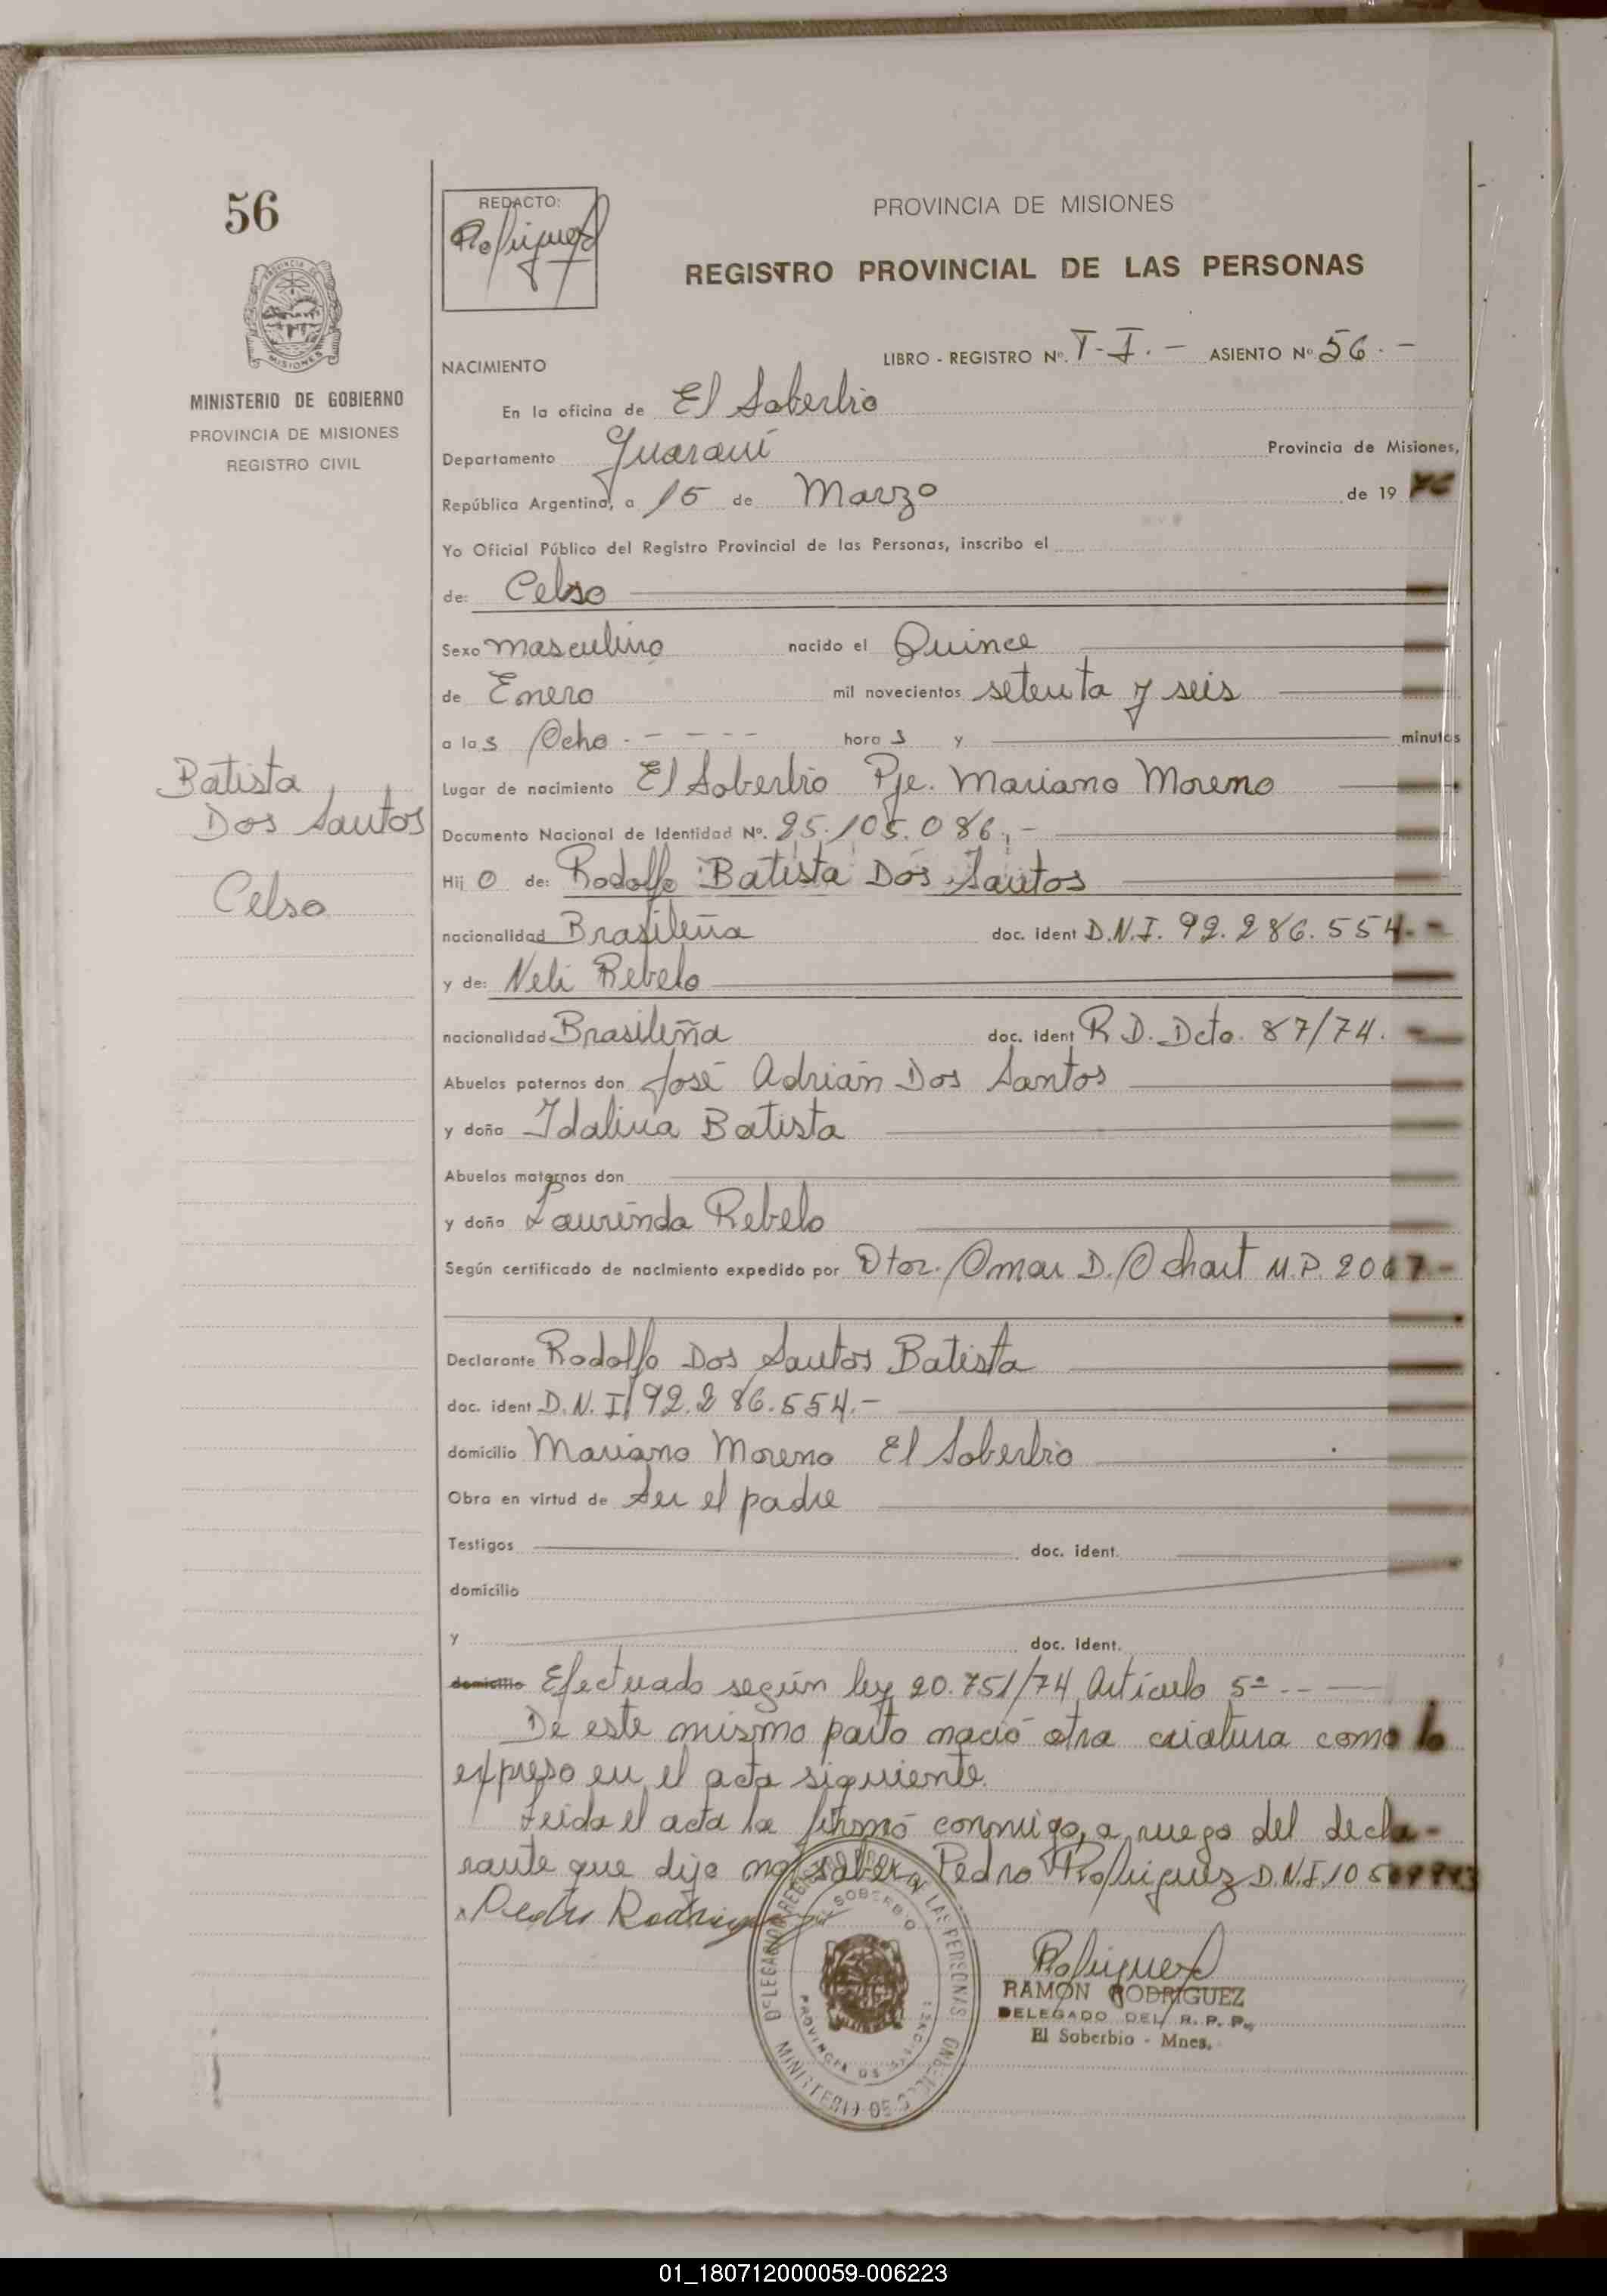 56
REDACTO:
Rodriguez
PROVINCIA DE MISIONES
REGISTRO PROVINCIAL DE LAS PERSONAS
MINISTERIO DE GOBIERNO
PROVINCIA DE MISIONES
REGISTRO CIVIL
NACIMIENTO
LIBRO - REGISTRO Nº. T-I.- ASIENTO Nº 56.-
En la oficina de El Soberbio
Departamento Guaraní Provincia de Misiones,
República Argentina, a 15 de Marzo de 19 76
Yo Oficial Público del Registro Provincial de las Personas, inscribo el
de: Celso
Sexo masculino nacido el Quince
de Enero mil novecientos setenta y seis
a las Ocho.- - - - horas y minutos
Lugar de nacimiento El Soberbio Pje. Mariano Moreno
Batista
Dos Santos
Celso
Documento Nacional de Identidad Nº. 25.105.086.-
Hijo de: Rodolfo Batista Dos Santos
nacionalidad Brasileña doc. ident D.N.I. 92.286.554.-
y de: Neli Rebelo
nacionalidad Brasileña doc. ident R.D. Dcto. 87/74.
Abuelos paternos don José Adrián Dos Santos
y doña Idalina Batista
Abuelos maternos don
y doña Laurinda Rebelo
Según certificado de nacimiento expedido por Dtor. Omar D. Ochart M.P. 2067-
Declarante Rodolfo Dos Santos Batista
doc. ident D.N.I. 92.286.554.-
domicilio Mariano Moreno El Soberbio
Obra en virtud de Ser el padre
Testigos doc. ident.
domicilio
y doc. ident.
domicilio Efectuado según ley 20.751/74 Artículo 5º.--
De este mismo parto nació otra criatura como lo
expreso en el acta siguiente.
Leida el acta la firmó conmigo, a ruego del decla-
rante que dijo no saber, Pedro Rodriguez D.N.I. 10
Pedro Rodriguez
DELEGACION REGISTRO PROV. DE LAS PERSONAS
SOBERBIO
PROVINCIA DE MISIONES
MINISTERIO DE GOBIERNO
Rodriguez
RAMON RODRIGUEZ
DELEGADO DEL R. P. P.
El Soberbio - Mnes.
01_180712000059-006223